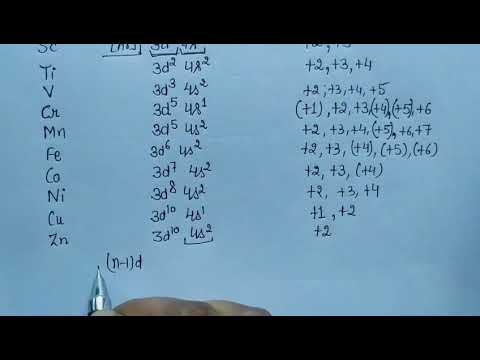 Sc [Ar] 3d¹ 4s² +2, +3
Ti 3d² 4s² +2, +3, +4
V 3d³ 4s² +2, +3, +4, +5
Cr 3d⁵ 4s¹ (+1), +2, +3, (+4), (+5), +6
Mn 3d⁵ 4s² +2, +3, +4, (+5), +6, +7
Fe 3d⁶ 4s² +2, +3, (+4), (+5), (+6)
Co 3d⁷ 4s² +2, +3, (+4)
Ni 3d⁸ 4s² +2, +3, +4
Cu 3d¹⁰ 4s¹ +1, +2
Zn 3d¹⁰ 4s² +2
(n-1)d